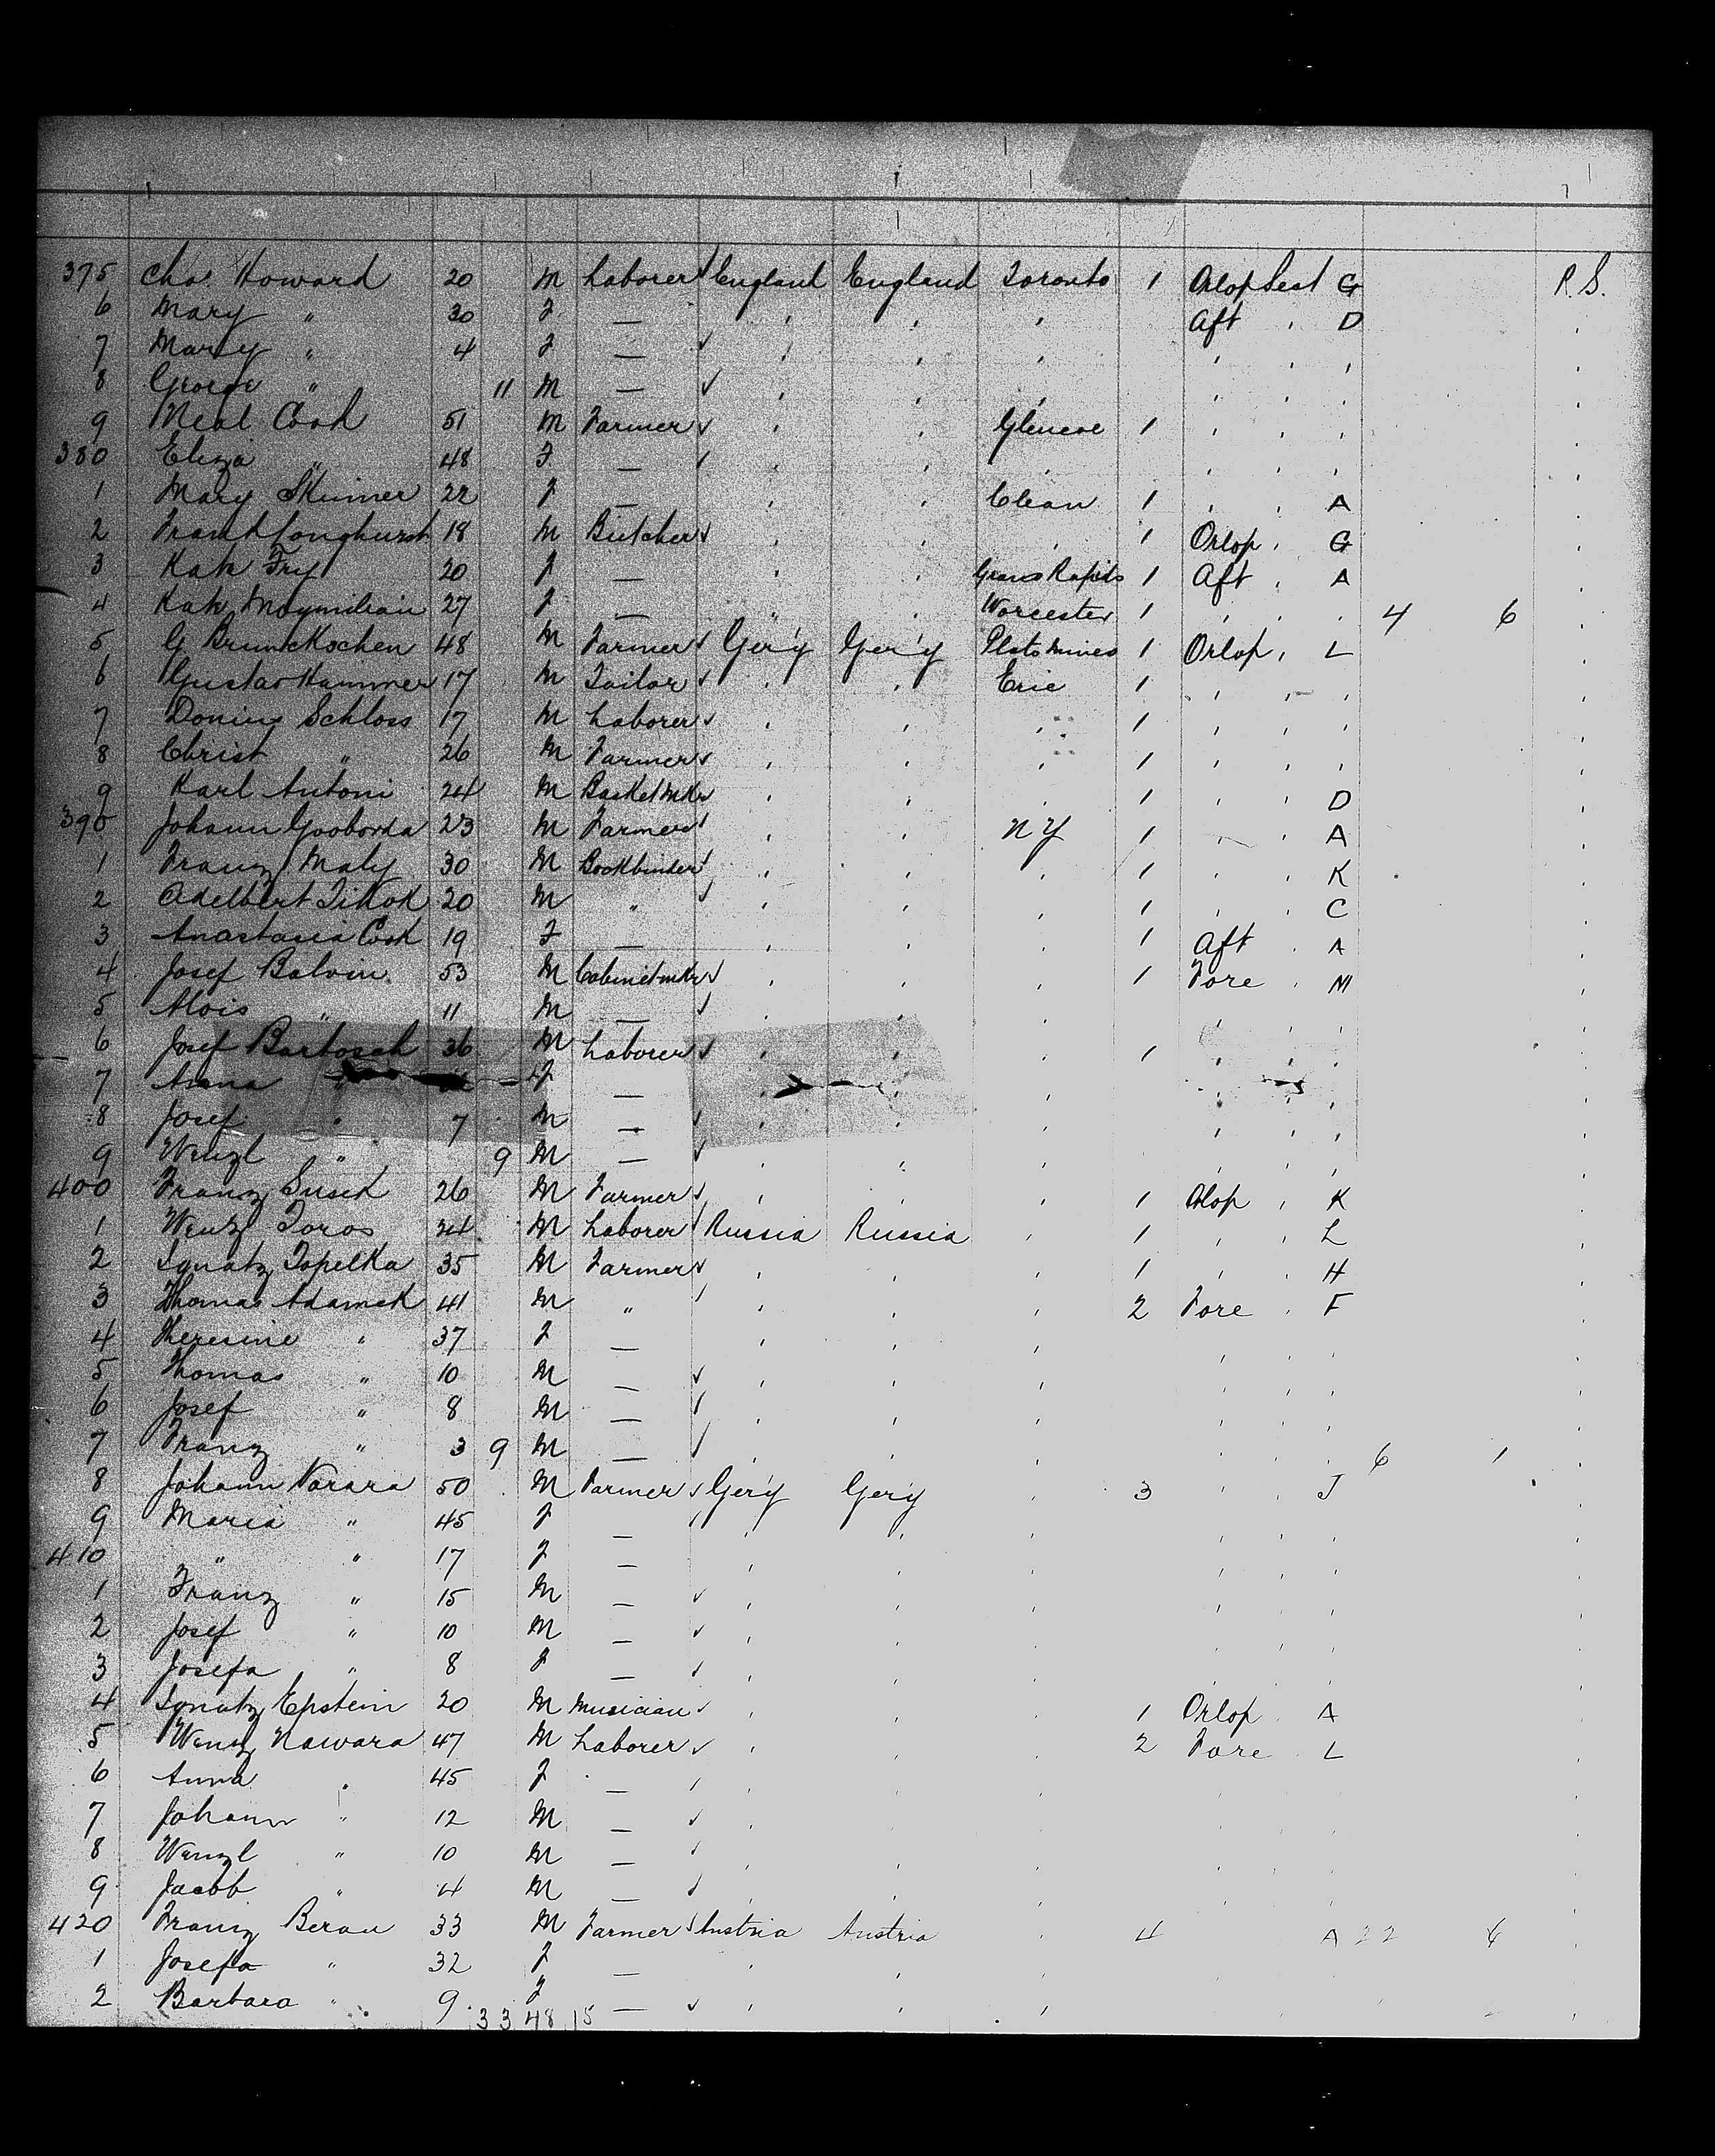 375 Chas. Howard 20 M Laborer ✓ England England Toronto 1 Orlop Sect G P.S.
6 Mary " 30 F — ' ' ' Aft ' D '
7 Mary " 4 F — ✓ ' ' ' ' ' ' '
8 George " 11 M — ✓ ' ' ' ' ' ' '
9 Neal Cook 51 M Farmer ✓ ' ' Glencoe 1 ' ' ' '
380 Eliza " 48 F — ✓ ' ' ' ' ' ' '
1 Mary Skinner 22 F — ' ' Olean 1 ' ' A '
2 Frank Longhurst 18 M Butcher ✓ ' ' ' 1 Orlop ' G '
3 Kate Fry 20 F — ' ' Grand Rapids 1 Aft ' A '
4 Kate Maymilian 27 F — " ' Worcester 1 ' ' ' 4 6 '
5 G Brunckschen 48 M Farmer ✓ Ger'y Ger'y 1 Orlop ' L '
6 Gustav Hammer 17 M Tailor ✓ ' ' Erie 1 ' ' ' '
7 Schloss 17 M Laborer ✓ ' ' ' 1 ' ' ' '
8 Christ " 26 M Farmer ✓ ' ' ' 1 ' ' ' '
9 Karl Antoni 24 M Basketmkr ✓ ' ' ' 1 ' ' D '
390 Johann 23 M Farmer ✓ ' ' NY 1 ' ' A '
1 Franz Maly 30 M Bookbinder ✓ ' ' ' 1 ' ' K '
2 Adelbert Tikok 20 M " ✓ ' ' ' 1 ' ' C '
3 Anastasia Cook 19 F — ' ' ' 1 Aft ' A '
4 Josef Balvin 53 M Cabinetmkr ✓ ' ' ' 1 Fore ' M '
5 Alois " 11 M — ✓ ' ' ' ' ' ' '
6 Josef Bartosch 36 M Laborer ✓ ' ' ' 1 ' ' ' '
7 Anna " F — ' ' ' ' ' '
8 Josef " 7 M — ✓ ' ' ' ' ' ' '
9 Wenzl " 9 M — ✓ ' ' ' ' ' ' '
400 Franz Susek 26 M Farmer ✓ ' ' ' 1 Olop ' K '
1 Wenzl Toros 24 M Laborer ✓ Russia Russia ' 1 ' ' L '
2 Ignatz Topelka 35 M Farmer ✓ ' ' ' 1 ' ' H '
3 Thomas Adamek 41 M " ✓ ' ' ' 2 Fore ' F '
4 Theresine " 37 F — ' ' ' ' ' ' '
5 Thomas " 10 M — ✓ ' ' ' ' ' ' '
6 Josef " 8 M — ✓ ' ' ' ' ' ' '
7 Franz " 3 9 M — ✓ ' ' ' ' ' ' 6 1 '
8 Johann Varara 50 M Farmer ✓ Ger'y Ger'y ' 3 ' ' J '
9 Maria " 45 F — ✓ ' ' ' ' ' ' '
410 " " 17 F — ' ' ' ' ' ' '
1 Franz " 15 M — ✓ ' ' ' ' ' ' '
2 Josef " 10 M — ✓ ' ' ' ' ' ' '
3 Josefa " 8 F — ✓ ' ' ' ' ' ' '
4 Ignatz Epstein 20 M Musician ✓ ' ' ' 1 Orlop ' A '
5 Wenzl Nawara 47 M Laborer ✓ ' ' ' 2 Fore ' L '
6 Anna " 45 F — ✓ ' ' ' '
7 Johann " 12 M — ✓ ' ' ' '
8 Wenzl " 10 M — ✓ ' ' ' '
9 Jacob " 4 M — ✓ ' ' ' '
420 Franz Beran 33 M Farmer ✓ Austria Austria ' 4 A 22 '
1 Josefa " 32 F — ' ' ' '
2 Barbara " 9 F — ✓ ' ' ' '
33 48 15